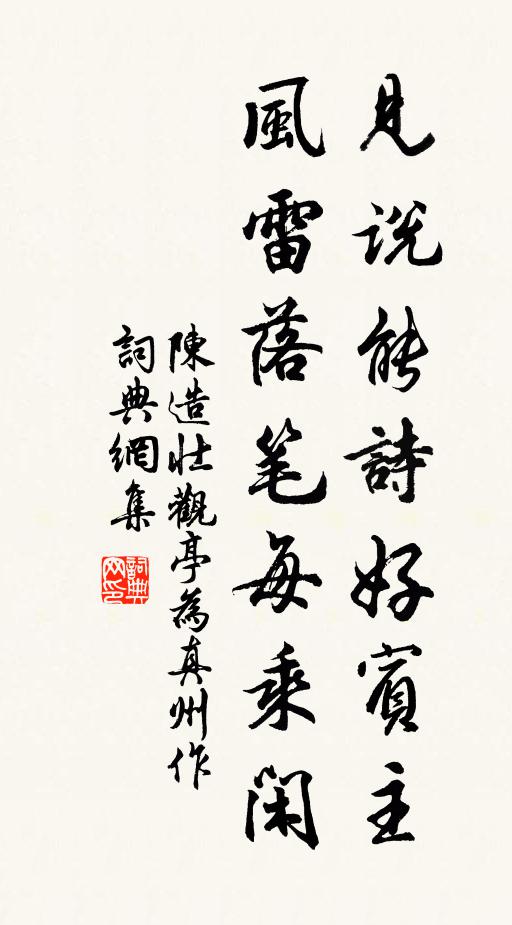 見説能詩好賓主
風雷落笔每乘閑
陳造壯觀亭為真州作
詞典網集
詞典网印